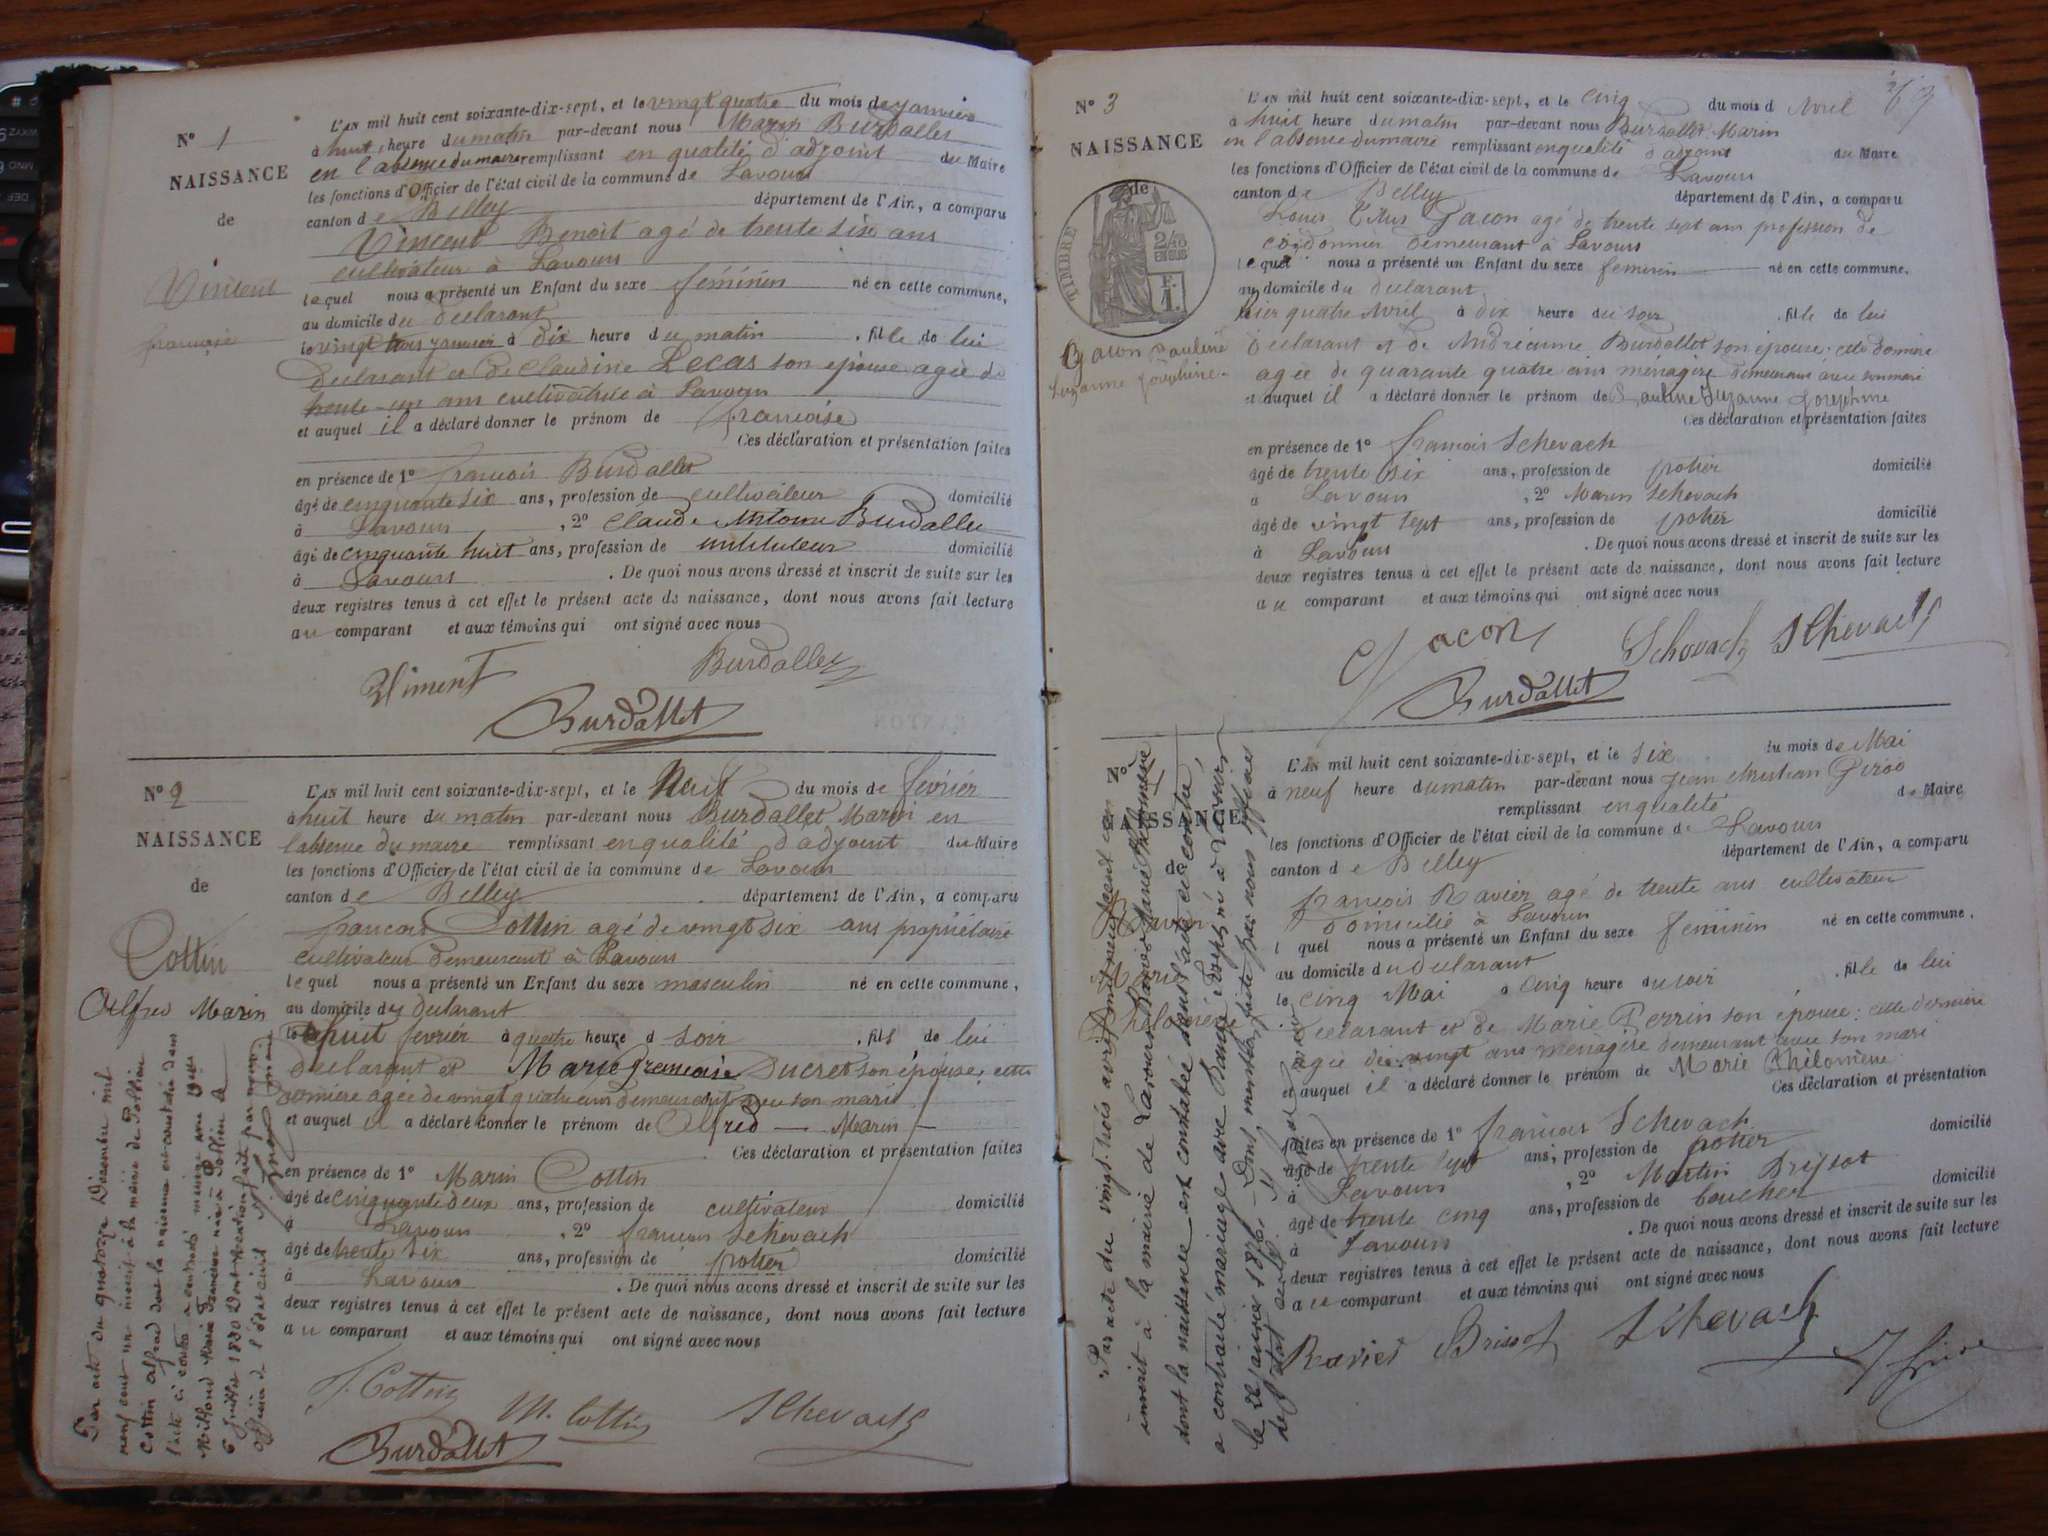 N° 1
NAISSANCE
de
Vincent
françoise
L'AN mil huit cent soixante-dix-sept, et le vingt quatre du mois de janvier
à huit heure du matin par-devant nous Marin Burdallet
en l'absence du maire remplissant en qualité d'adjoint du Maire
les fonctions d'Officier de l'état civil de la commune de Lavours
canton de Belley département de l'Ain, a comparu
Vincent Benoit agé de trente six ans
cultivateur à Lavours
lequel nous a présenté un Enfant du sexe féminin né en cette commune,
au domicile du declarant
le vingt trois janvier à dix heure du matin , fille de lui
declarant et de Claudine Lecas son epouse agée de
trente un ans cultivatrice à Lavours
et auquel il a déclaré donner le prénom de françoise
Ces déclaration et présentation faites
en présence de 1° francois Burdallet
âgé de cinquante six ans, profession de cultivateur domicilié
à Lavours , 2° Claude Antoine Burdallet
âgé de cinquante huit ans, profession de instituteur domicilié
à Lavours . De quoi nous avons dressé et inscrit de suite sur les
deux registres tenus à cet effet le présent acte de naissance, dont nous avons fait lecture
au comparant et aux témoins qui ont signé avec nous
Burdallet
Burdallet
N° 2
NAISSANCE
de
Cottin
Alfred Marin
L'AN mil huit cent soixante-dix-sept, et le Neuf du mois de février
à huit heure du matin par-devant nous Burdallet Marin en
l'absence du maire remplissant en qualité d'adjoint du Maire
les fonctions d'Officier de l'état civil de la commune de Lavours
canton de Belley département de l'Ain, a comparu
francois Cottin agé de vingt six ans propriétaire
cultivateur demeurant à Lavours
lequel nous a présenté un Enfant du sexe masculin né en cette commune,
au domicile du declarant
le huit fevrier à quatre heure d soir , fils de lui
declarant et Marie francoise Ducret son épouse; cette
derniere agée de vingt quatre ans demeurant avec son mari
et auquel il a déclaré donner le prénom de Alfred — Marin —
Ces déclaration et présentation faites
en présence de 1° Marin Cottin
âgé de cinquante deux ans, profession de cultivateur domicilié
à Lavours , 2° francois Schevach
âgé de trente six ans, profession de potier domicilié
à Lavours . De quoi nous avons dressé et inscrit de suite sur les
deux registres tenus à cet effet le présent acte de naissance, dont nous avons fait lecture
au comparant et aux témoins qui ont signé avec nous
Par acte du quatorze Décembre mil
neuf cent un inscrit à la mairie de Pollieu
Cottin Alfred dont la naissance est constatée dans
l'acte ci contre a contracté mariage avec Dlle
Milliond Marie née à Pollieu le
6 juillet 1880 Dont mention faite par nous
officier de l'état civil
F. Cottin M. Cottin Schevach
Burdallet
N° 3
NAISSANCE
de
TIMBRE
2/10
EN SUS
F.
1.
Gacon Pauline
Suzanne Joséphine
L'AN mil huit cent soixante-dix-sept, et le cinq du mois d Avril
à huit heure du matin par-devant nous Burdallet Marin
en l'absence du maire remplissant en qualité d'adjoint du Maire
les fonctions d'Officier de l'état civil de la commune de Lavours
canton de Belley département de l'Ain, a comparu
Louis Gacon agé de trente sept ans profession de
cordonnier demeurant à Lavours
lequel nous a présenté un Enfant du sexe feminin né en cette commune.
au domicile du declarant
hier quatre Avril à dix heure du soir , fille de lui
declarant et de Andréanne Burdallet son épouse; cette derniere
agée de quarante quatre ans ménagère demeurant avec son mari
et auquel il a déclaré donner le prénom de Pauline Suzanne Josephine
Ces déclaration et présentation faites
en présence de 1° francois Schevach
âgé de trente six ans, profession de potier domicilié
à Lavours , 2° Marin Schevach
âgé de vingt sept ans, profession de potier domicilié
à Lavours . De quoi nous avons dressé et inscrit de suite sur les
deux registres tenus à cet effet le présent acte de naissance, dont nous avons fait lecture
au comparant et aux témoins qui ont signé avec nous
Gacon Schevach Schevach
Burdallet
N°
NAISSANCE
de
Ravier
Marie
Philomène
L'AN mil huit cent soixante-dix-sept, et le six du mois de Mai
à neuf heure du matin par-devant nous
remplissant en qualité de Maire
les fonctions d'Officier de l'état civil de la commune de Lavours
canton de Belley département de l'Ain, a comparu
françois Ravier agé de trente ans cultivateur
domicilié à Lavours
lequel nous a présenté un Enfant du sexe féminin né en cette commune.
au domicile du declarant
le cinq Mai à cinq heure du soir , fille de lui
declarant et de Marie Perrin son épouse; cette derniere
agée de vingt ans ménagère demeurant avec son mari
et auquel il a déclaré donner le prénom de Marie Philomène
Ces déclaration et présentation
faites en présence de 1° francois Schevach
âgé de trente sept ans, profession de potier domicilié
à Lavours , 2° Martin Brissot
âgé de trente cinq ans, profession de boucher domicilié
à Lavours . De quoi nous avons dressé et inscrit de suite sur les
deux registres tenus à cet effet le présent acte de naissance, dont nous avons fait lecture
au comparant et aux témoins qui ont signé avec nous
Par acte du vingt-trois avril
inscrit à la mairie de Lavours Ravier Marie Philomène
dont la naissance est constatée dans l'acte ci-contre,
a contracté mariage avec Joseph né à Lavours
le 22 janvier Dont mention faite par nous officier
de l'état civil
Ravier Brissot Schevach